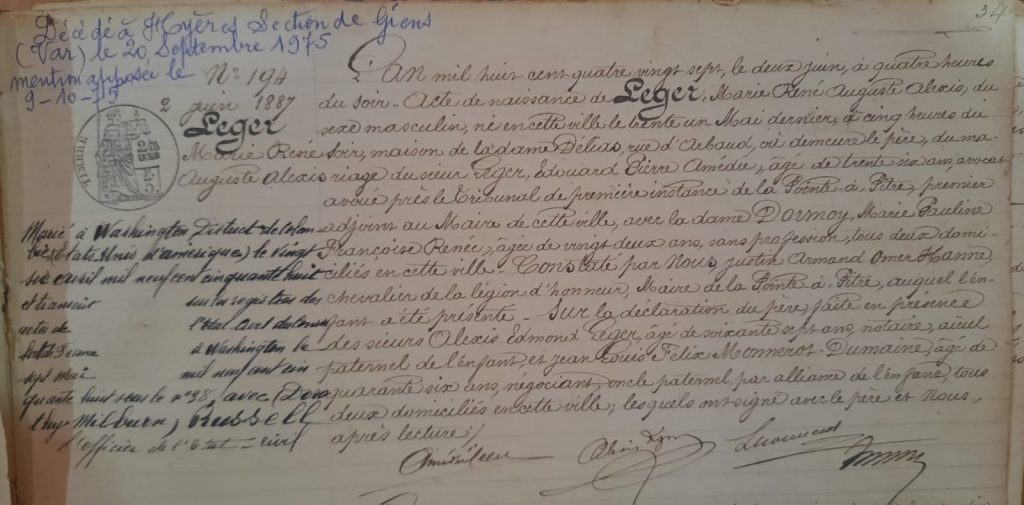 34
Décédé à Hyères Section de Giens
(Var) le 20 Septembre 1975
mention apposée le
9-10-75
N° 194
2 juin 1887
Leger
Marie René
Auguste Alexis
TIMBRE
Marié à Washington District de Colom-
bie (Etats Unis d'amérique) le vingt
six avril mil neuf cent cinquante huit
et transcrit sur les registres des
actes de l'état civil du
de France à Washington le
sept mai mil neuf cent cin
quante huit sous le n°38, avec Doro
thy Milburn, Russell
l'officier de l'Etat-civil
L'an mil huit cent quatre vingt sept, le deux juin, à quatre heures
du soir - Acte de naissance de Leger, Marie René Auguste Alexis, du
sexe masculin, né en cette ville le trente un Mai dernier, à cinq heures du
soir, maison de la dame Délias, rue d'Arbaud, où demeure le père, du ma-
riage du sieur Leger, Edouard Pierre Amédée, âgé de trente six ans, avocat
avoué près le Tribunal de première instance de la Pointe-à-Pitre, premier
adjoint au Maire de cette ville, avec la dame Dormoy, Marie Pauline
Françoise Renée, âgée de vingt deux ans, sans profession, tous deux domi-
ciliés en cette ville - Constaté par Nous, justin Armand Omer Hanne,
chevalier de la légion d'honneur, Maire de la Pointe-à-Pitre, auquel l'en-
fant a été présenté - Sur la déclaration du père, faite en présence
des sieurs Alexis Edmond Leger, âgé de soixante sept ans, notaire, aïeul
paternel de l'enfant, et jean Louis Félix Monnerot-Dumaine, âgé de
quarante six ans, négociant, oncle paternel par alliance de l'enfant, tous
deux domiciliés en cette ville; lesquels ont signé avec le père et Nous,
après lecture:/